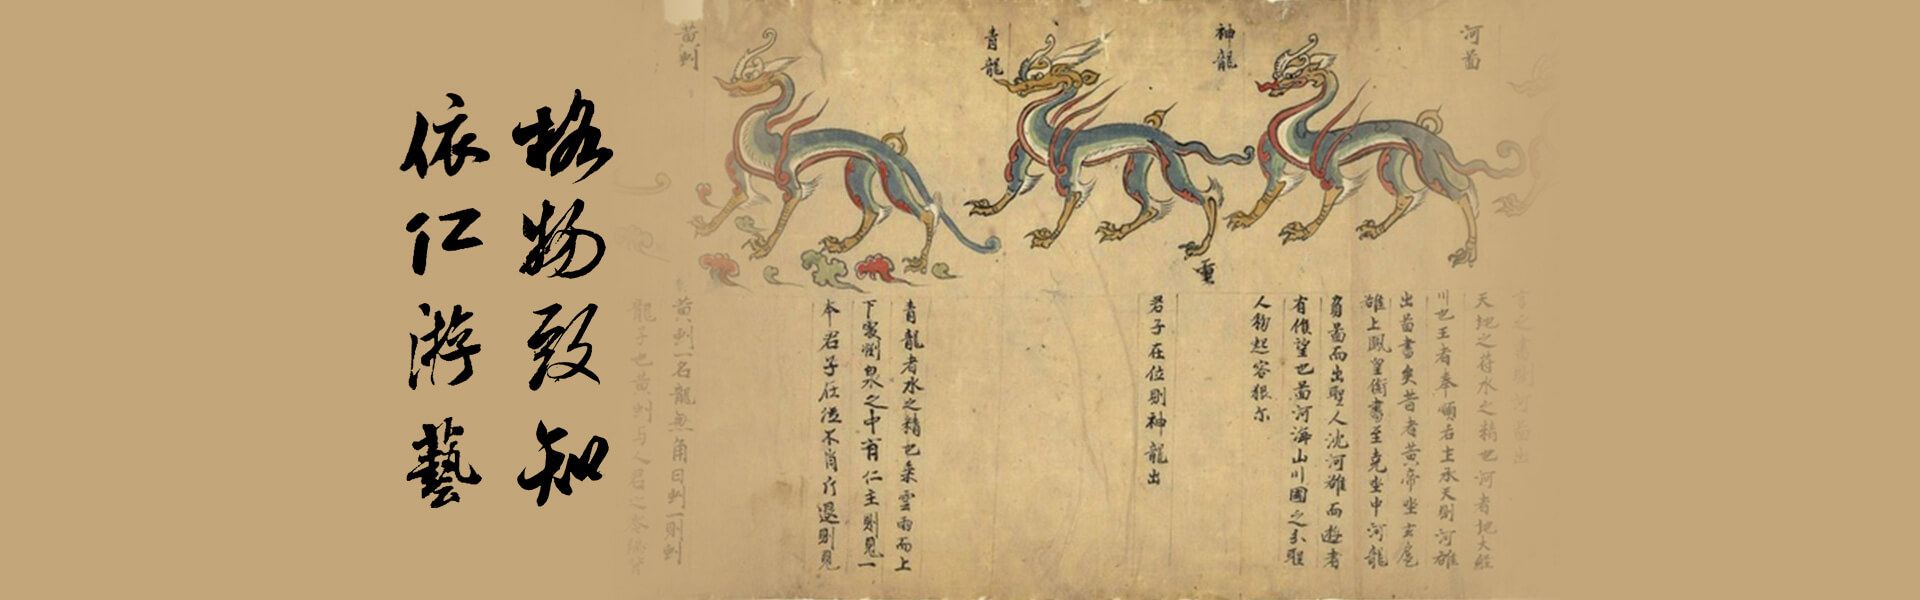 格物致知
依仁游藝
河啚
神龍
青龍
黄虯
天地之符水之精也河者地大經
川也王者奉順后土承天則河雒
出啚書矣昔者黄帝坐玄扈
雒上鳳皇銜書至堯坐中河龍
負啚而出聖人沈河雒而遊者
有候望也啚河海山川國之
人物起容狠尒
重
君子在位則神龍出
青龍者水之精也乗雲雨而上
下處淵泉之中有仁主則見一
本君子在位不肖斥退則見
黄虯一名龍無角曰虯一則虯
龍子也黄虯与人君之